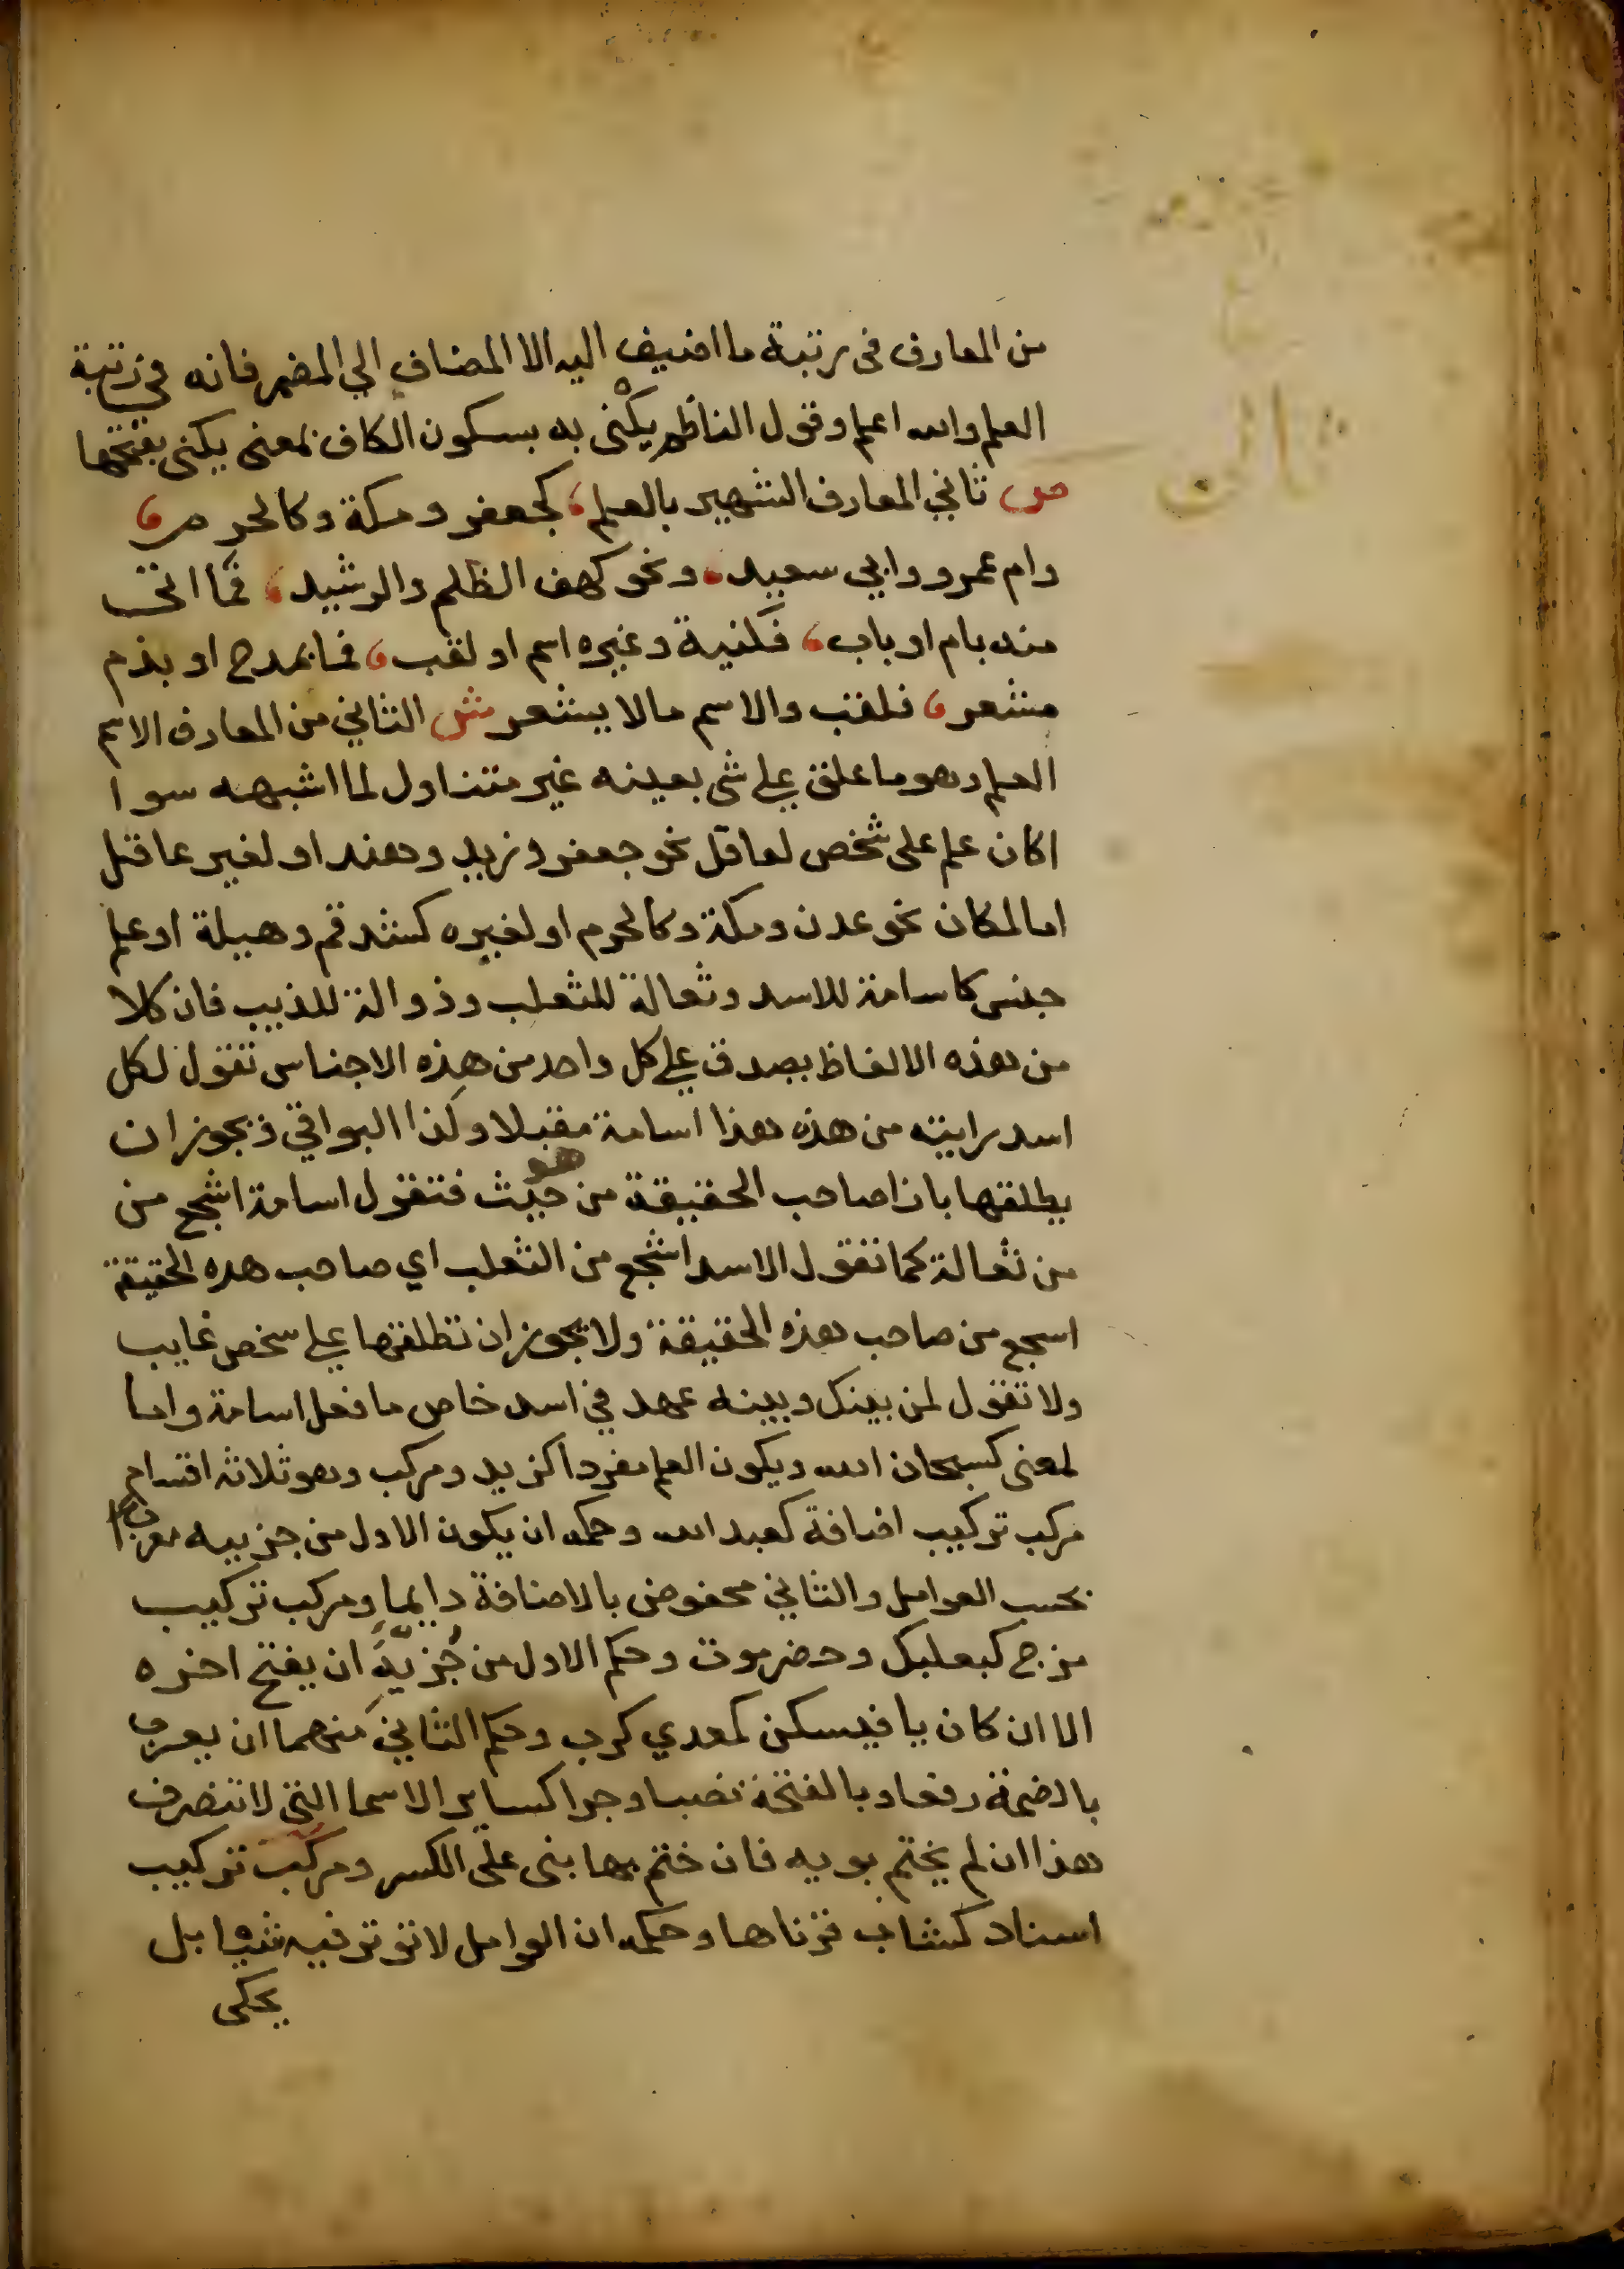 من المعارف فى رتبة ما اضيف اليه الا المضاف الي المضمر فانه في رتبة
العلم والله اعلم وقول الناظم يكْنى به بسكون الكاف بمعنى يكنى بفتحها
ص ثاني المعارف الشهير بالعلم، كجعفر ومكة وكالحرم،
وام عمرو وابي سعيد، ونحو كهف الظلم والرشيد، فما اتى
منه بام او باب، فكنية وغيره اسم او لقب، فما بمدح او بذم
مشعر، فلقب والاسم مالا يشعر ش الثاني من المعارف الاسم
العلم وهو ما علق على شى بعينه غير متناول لما اشبهه سوا
اكان علم على شخص لعاقل نحو جعفر وزيد وهند او لغير عاقل
اما لمكان نحو عدن ومكة وكالحرم او لغيره كشدقم وهيلة او علم
جنس كاسامة للاسد وثعالة للثعلب وذوالة للذيب فان كلا
من هذه الالفاظ يصدق على كل واحد من هذه الاجناس تقول لكل
اسد رايته من هذه هذا اسامة مقبلا وكذا البواقي ويجوز ان
يطلقها بازا صاحب الحقيقة من حيث هو فتقول اسامة اشجع من
من ثعالة كما تقول الاسد اشجع من الثعلب اي صاحب هده الحقيقة
اسجع من صاحب هذه الحقيقة ولا يجوز ان تطلقها على سخص غايب
ولا تقول لمن بينك وبينه عهد في اسد خاص ما فعل اسامة واما
لمعنى كسبحان الله ويكون العلم مفردا كزيد ومركب وهو ثلاثه اقسام
مركب تركيب اضافة كعبد الله وحكمه ان يكون الاول من جزييه معربا
بحسب العوامل والثاني محفوض بالاضافة دايما ومركب تركيب
مزج كبعلبك وحضرموت وحكم الاول من جُزيّه ان يفتح اخره
الا ان كان يا فيسكن كمعدي كرب وحكم الثاني منهما ان يعرب
بالضمة رفعا وبالفتحة نصبا وجرا كساير الاسما التي لا تنصرف
هذا ان لم يختم بويه فان ختم بها بنى على الكسر ومركب تركيب
اسناد كشاب قرناها وحكمه ان العوامل لا توتر فيه شيا بل
يحكى